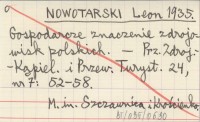 NOWOTARSKI Leon 1935.
Gospodarcze znaczenie zdrojo-
wisk polskich. — Prz. Zdroj.-
-Kąpiel. i Przew. Turyst. 24,
nr 7: 52-58.
M. in. Szczawnica i Krościenko.